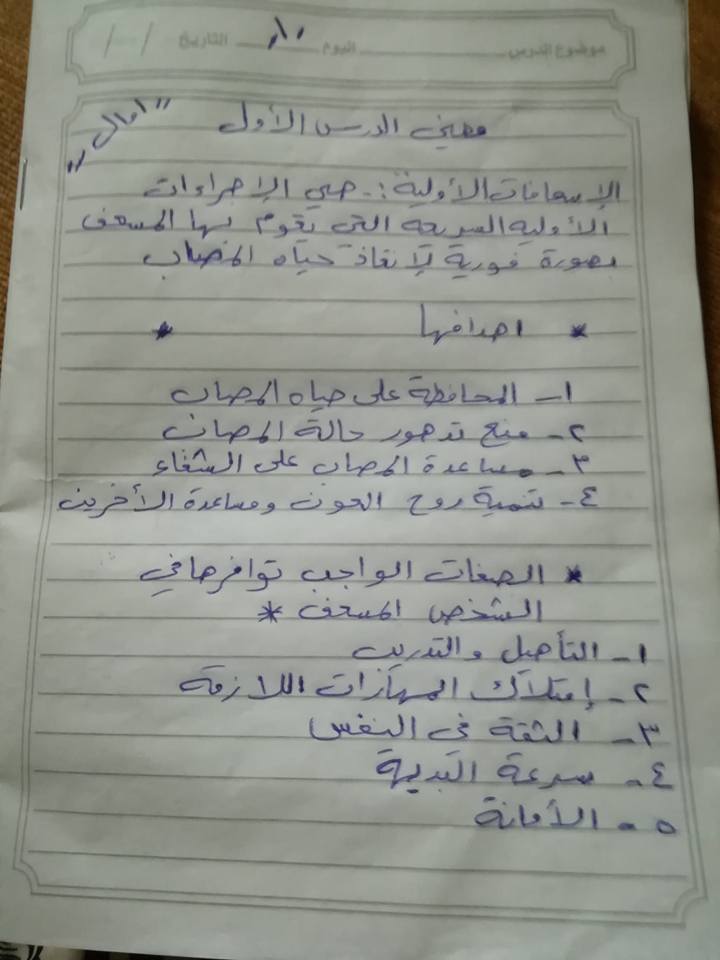 موضوع الدرس اليوم التاريخ / /
معنى الدرس الأول "اموال"
الإسعافات الأولية :- هي الإجراءات
الأولية السريعة التى يقوم بها المسعف
بصورة فورية لإنقاذ حياه المصاب
* اهدافها *
١- المحافظة على حياه المصاب
٢- منع تدهور حالة المصاب
٣- مساعدة المصاب على الشفاء
٤- تنمية روح العون ومساعدة الأخرين
* الصفات الواجب توافرها في
الشخص المسعف *
١- التأهيل والتدريب
٢- إمتلاك المهارات اللازمة
٣- الثقة فى النفس
٤- سرعة البديهة
٥- الأمانة